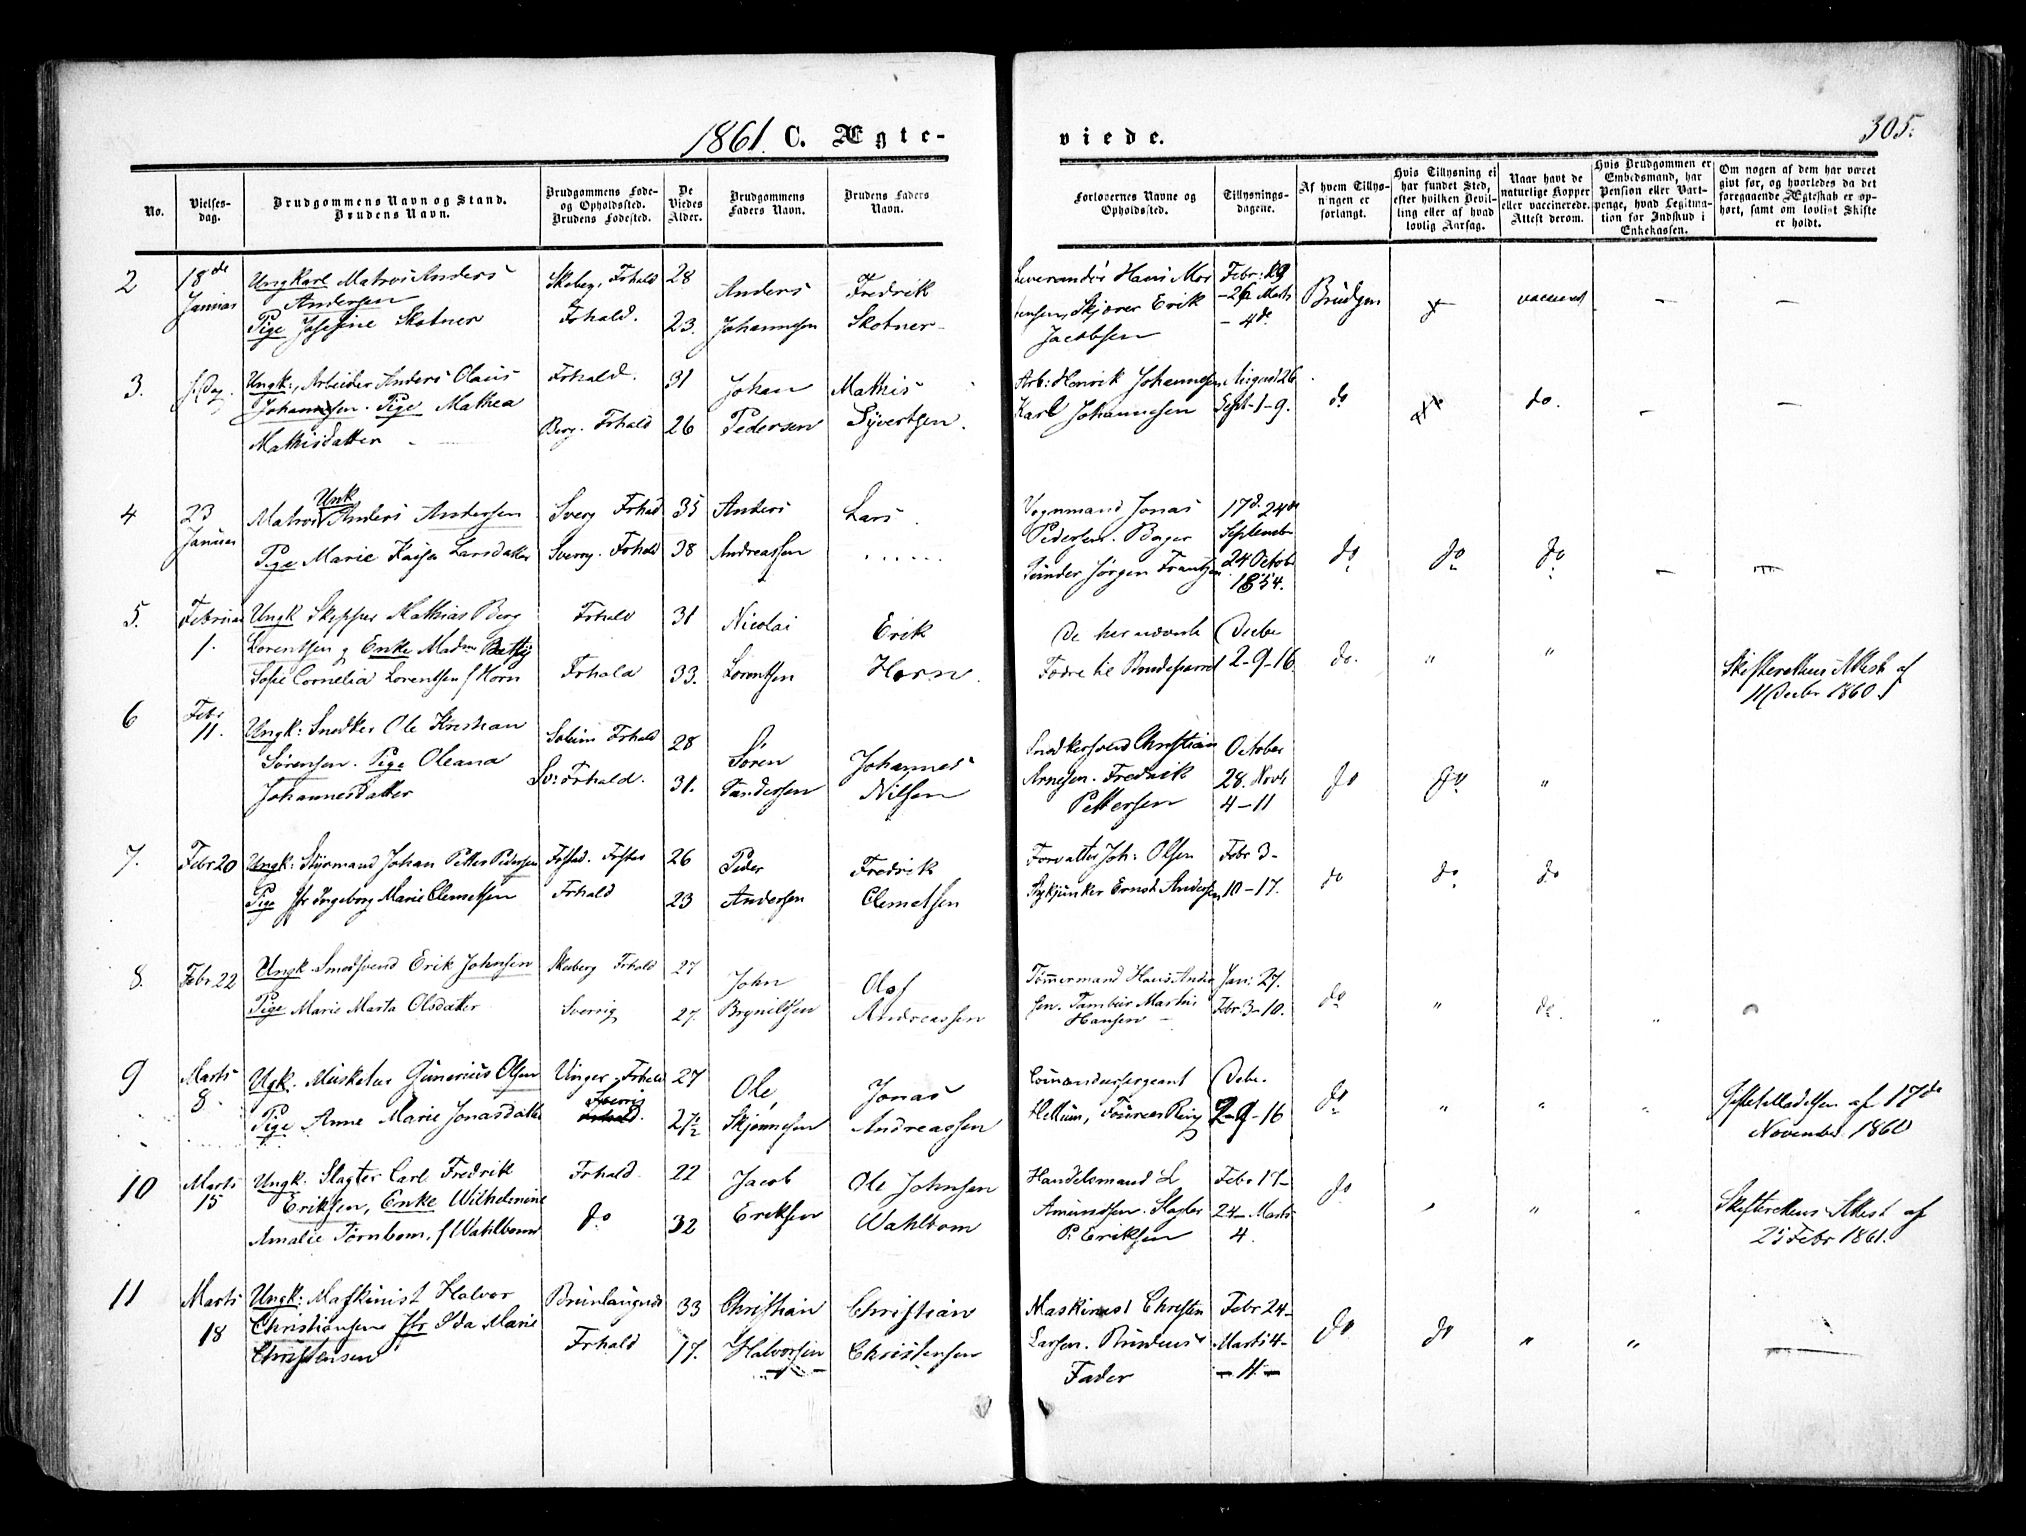 1861. C. Ægte-
viede.
305.
No.
Vielses-
dag.
Brudgommens Navn og Stand.
Brudens Navn.
Brudgommens Føde-
og Opholdssted.
Brudens Fødested.
De
Viedes
Alder.
Brudgommens
Faders Navn.
Brudens Faders
Navn.
Forlovernes Navne og
Opholdssted.
Tillysnings-
dagene.
Af hvem Tillys-
ningen er
forlangt.
Hvis Tillysning ei
har fundet Sted,
efter hvilken Bevil-
ling eller af hvad
lovlig Aarsag.
Naar havt de
naturlige Kopper
eller vaccinerede.
Attest derom.
Hvis Brudgommen er
Embedsmand, har
Pension eller Vart-
penge, hvad Legitima-
tion for Indskud i
Enkekassen.
Om nogen af dem har været
givt før, og hvorledes da det
foregaaende Ægteskab er op-
hørt, samt om lovligt Skifte
er holdt.
2 18de Januar
Ungkarl Matros Anders
Andersen
Pige Josefine Skotner
Skeberg, Frhald
Frhald.
28
23.
Anders
Johannesen
Fredrik
Skotner
Leverandør Hans Mor
tensen, Skjærer Erik
Jacobsen
Febr: 19
-26 Marts
- 4de
Brudgen
vaccineret
3.
Ungk: Arbeider Anders Olaus
Johannesen. Pige Mathea
Mathisdatter
Frhald.
Berg. Frhald
31
26
Johan
Pedersen
Mathis
Syvertsen.
Arb: Henrik Johannesen
Karl Johannesen
August 26
Sept-1-9.
do
do.
4 23 Januar
Unk
Matros Anders Andersen
Pige Marie Kajsa Larsdatter
Sverg Frhald
Sverrg. Frhald
35
38
Anders
Andreassen
Lars
Vognmand Jonas
Pedersen. Borger
Jørgen Frantsen
17d. 24de
September
24 October
1854.
do do do
5. Februar 1.
Ungk Skipper Mathias Berg
Lorentsen og Enke Madm Betty
Sofie Cornelia Lorentsen f Horn
Frhald
Frhald
31
33.
Nicolai
Lorentsen
Erik
Horn
De her nævnte
Fædre til Brudeparret
Decbr
2-9-16
do. " "
Skifterettens Attest af
11 Decbr 1860.
6 Febr 11.
Ungk: Snedker Ole Kristian
Sørensen. Pige Oleana
Johannesdatter
Soleim Frhald
Sv: Frhald.
28
31.
Søren
Tandersen
Johannes
Nilsen
Snedkersvend Christian
Arnesen. Fredrik
Pettersen
October
28. Novb
4-11
do do "
7. Febr 20
Ungk: Styrmand Johan Petter Pedersen
Pige Jfr Ingeborg Marie Clemetsen
Frhald
26
23
Peder
Andersen
Fredrik
Clemetsen
Forvalter Joh: Olsen
Stykjunker Ernst Andersen
Febr 3-
10-17.
do do do
8. Febr 22
Ungk Smedsvend Erik Johnsen
Pige Marie Marta Olsdatter
Skeberg Frhald
Sverrig
27
27.
John
Brynildsen
Olof
Andreassen
Tømmermand Hans Andre
sen. Tambur Martin
Hansen
Jan: 27.
Febr 3-10.
do " do "
9 Marts 8
Ugk. Musketer Gunerius Olsen
Pige Anne Marie Jonasdatter
Unger Frhald
Sverrig
Frhald.
27
27½
Ole
Skjønnesen
Jonas
Andreassen
Comandersergeant
Hellum, Fourer Ring
Debr.
2-9-16
do " " "
Gifte af 17de
November 1860
10 Marts 15
Ungk. Slagter Carl Fredrik
Eriksen, Enke Wilhelmine
Amalie Tørnbom, f Wahlbom
Frhald.
do
22
32
Jacob
Eriksen
Ole Johnsen
Wahlbom
Handelsmand L
Amundsen. Slagter
P. Eriksen
Febr 17-
24- Marts
4.
do " " "
Skifterettens Attest af
25 Febr 1861.
11 Marts 18
Ungk: Maskinist Halvor
Christiansen Jfr Ida Marie
Christensen
Brunlaugnes
Frhald
33
17.
Christian
Halvorsen
Christian
Christensen
Maskinist Christen
Larsen. Brudens
Fader
Febr 24-
Marts 4-
- 11 -
do do " "